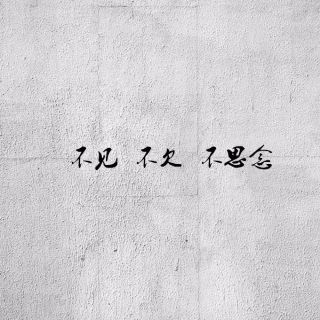 不见 不欠 不思念